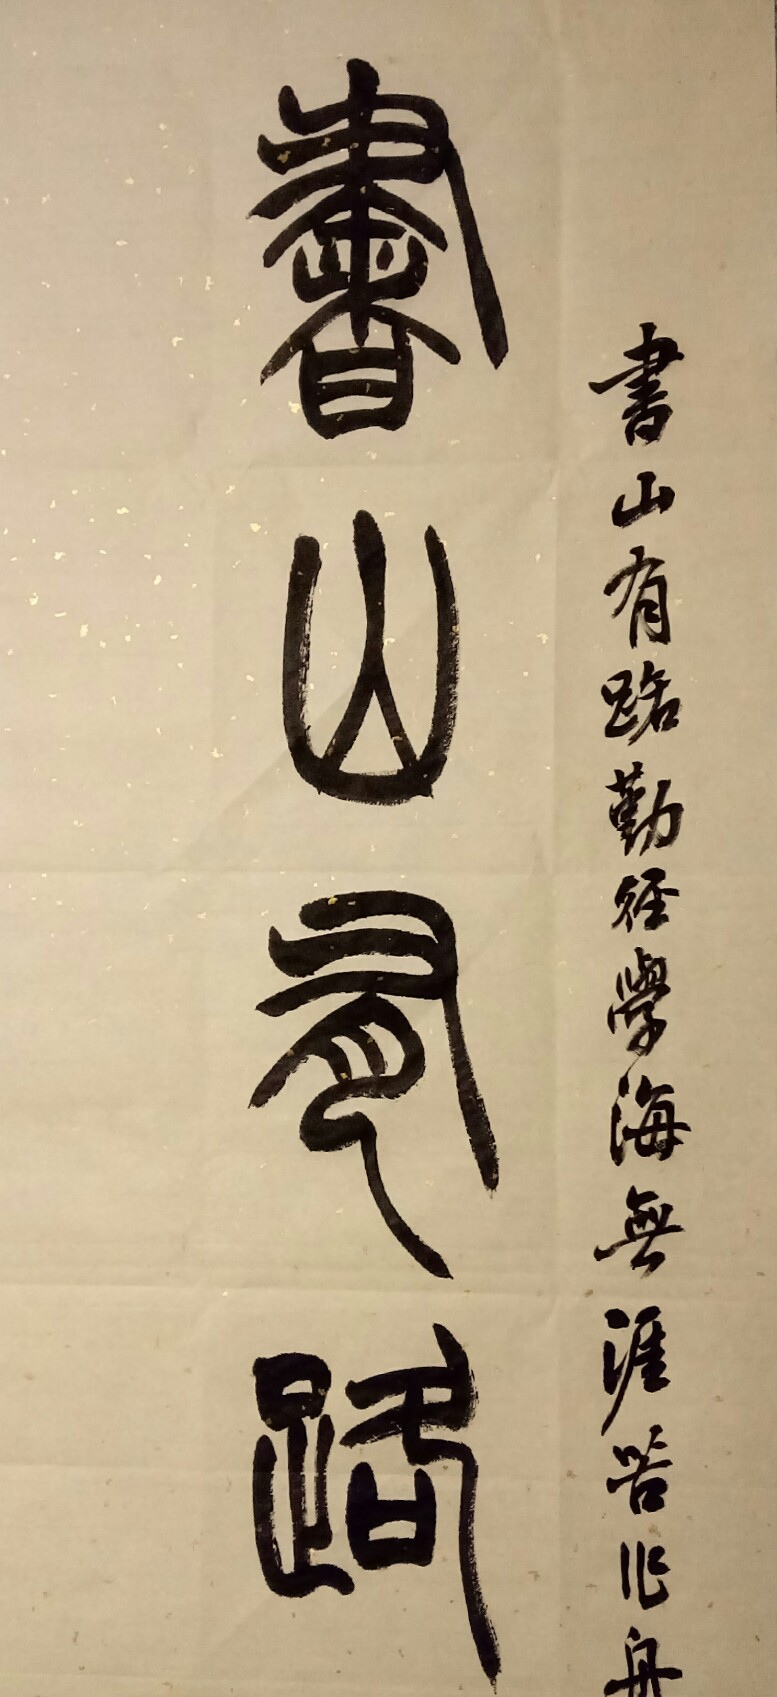 書山有路
書山有路勤径學海無涯苦作舟